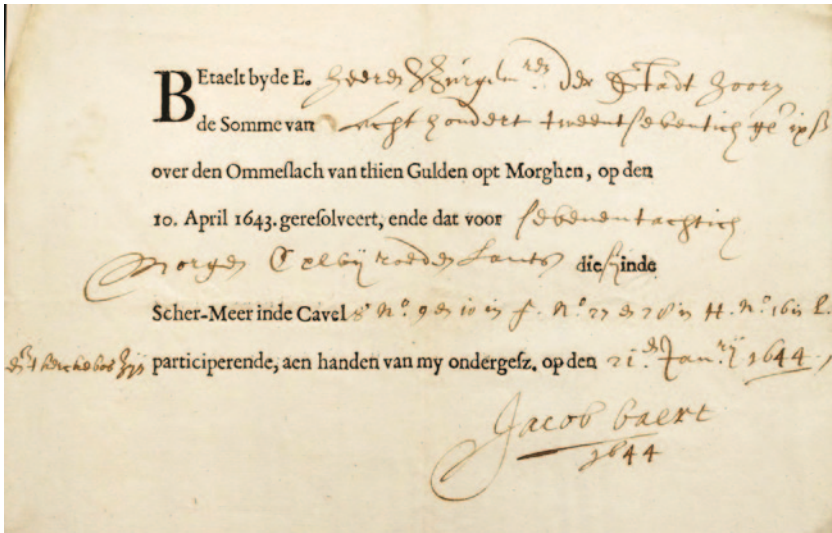 BEtaelt byde E. heeren Burgemren der Stadt hoorn
de Somme van Acht hondert tweentsebentich gl ix ß
over den Ommeslach van thien Gulden opt Morghen, op den
10. April 1643. geresolveert, ende dat voor sebenentachtich
Morgen Cxlvij roeden Lants die sy inde
Scher-Meer inde Cavels No. 9 en 10 in f. No. 27 en 28 in H. No. 16 in L.
participerende, aen handen van my ondergesz. op den 21.en Janrij 1644
Jacob baert
1644